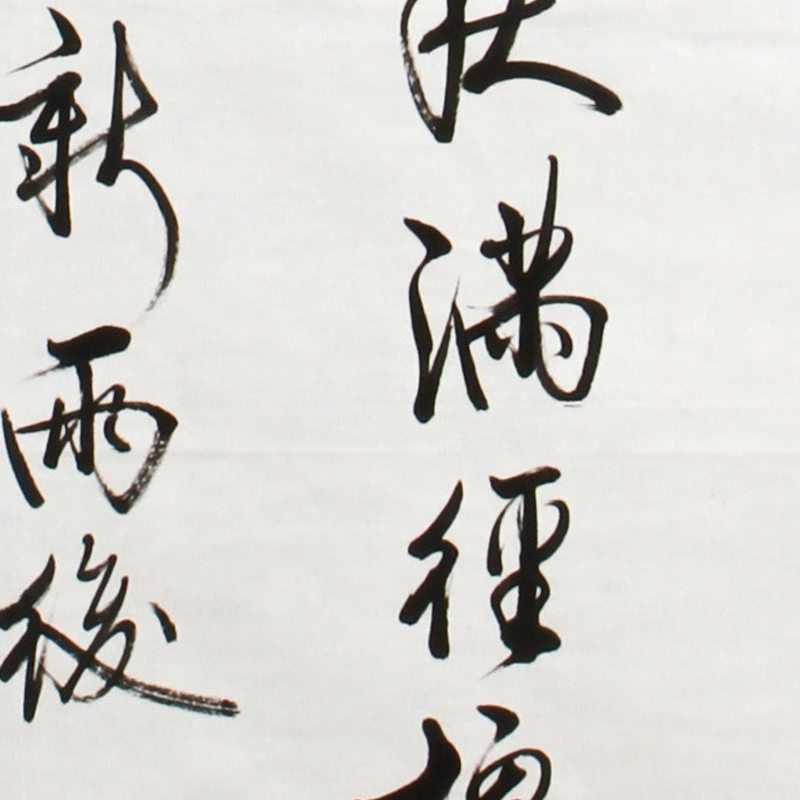 滿徑
新雨後